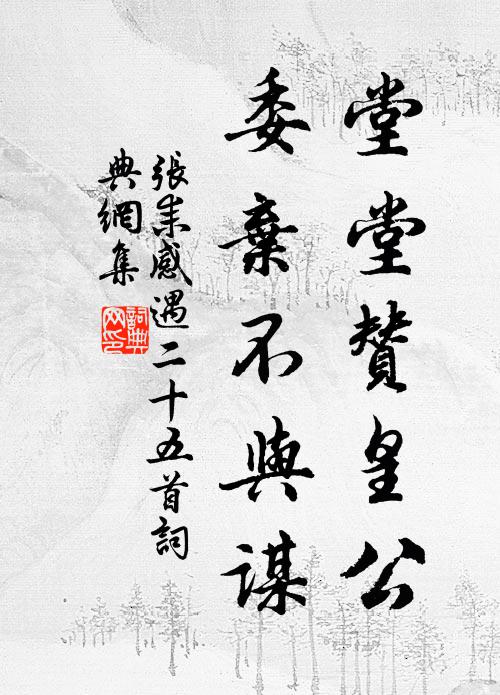 堂堂贊皇公
委棄不與謀
張耒感遇二十五首詞
典網集
詞典網印